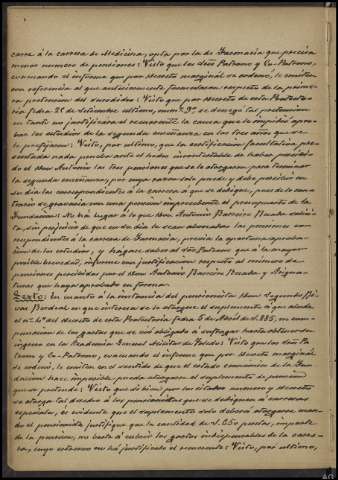 carse á la carrera de Medicina, opta por la de Farmacia que precisa
menor número de pensiones: Visto que los Sres Patrono y Co-Patrono,
evacuando el informe que por decreto marginal se ordenó, lo emiten
con referencia al que anteriormente formularon respecto de la primera
pretension del susodicho: Visto que por decreto de este Protectorado
fecha 25 de Setiembre último, núm. 9º se denegó tal pretension
en tanto no justificára el recurrente la causa que le impidió aprobar
los estudios de la segunda enseñanza en los tres años que se
le prefijaron: Visto, por último, que la certificacion facultativa presentada
nada prueba ante el hecho incontestable de haber percibido
el Don Antonio las tres pensiones que se le otorgaron para terminar
la segunda enseñanza, por cuya razon solo puede y debe percibir en
su dia las correspondientes á la carrera á que se dedique, pues de lo contrario
se gravaria con una pension improcedente el presupuesto de la
Fundacion: No ha lugar á lo que Don Antonio Barreiro solicita,
sin perjuicio de que en su dia le sean abonadas las pensiones correspondientes
á la carrera de Farmacia, previa la oportuna aprobacion
de los estudios, y hágase saber al Sr Patrono que á la mayor
posible brevedad, informe con justificacion respecto al número de
pensiones percibidas por el Don Antonio Barreiro y Asignaturas
que haya aprobado en forma.
Sexto: En cuanto á la instancia del pensionista Don
en que interesa se le otorgue el suplemento á que alude
el nº 4º del decreto de este Protectorado fecha 5 de Abril de 1885, en compensacion
de los gastos que se vió obligado á sufragar hasta obtener su
ingreso en la Academia General Militar de Toledo: Visto que los Sres Patrono
y Co-Patrono, evacuando el informe que por decreto marginal
se ordenó, lo emiten en el sentido de que el estado económico de la Fundacion
hace imposible pueda otorgarse el suplemento de pension
que se pretende: Visto que si bien por los citados número y decreto
se otorga tal derecho á los pensionistas que se dediquen á carreras
especiales, es evidente que el suplemento solo deberá otorgarse cuando
el pensionista justifique que la cantidad de pesetas, importe
de la pension, no basta á cubrir los gastos indispensables de la carrera,
cuyo extremo no há justificado el recurrente: Visto, por último,